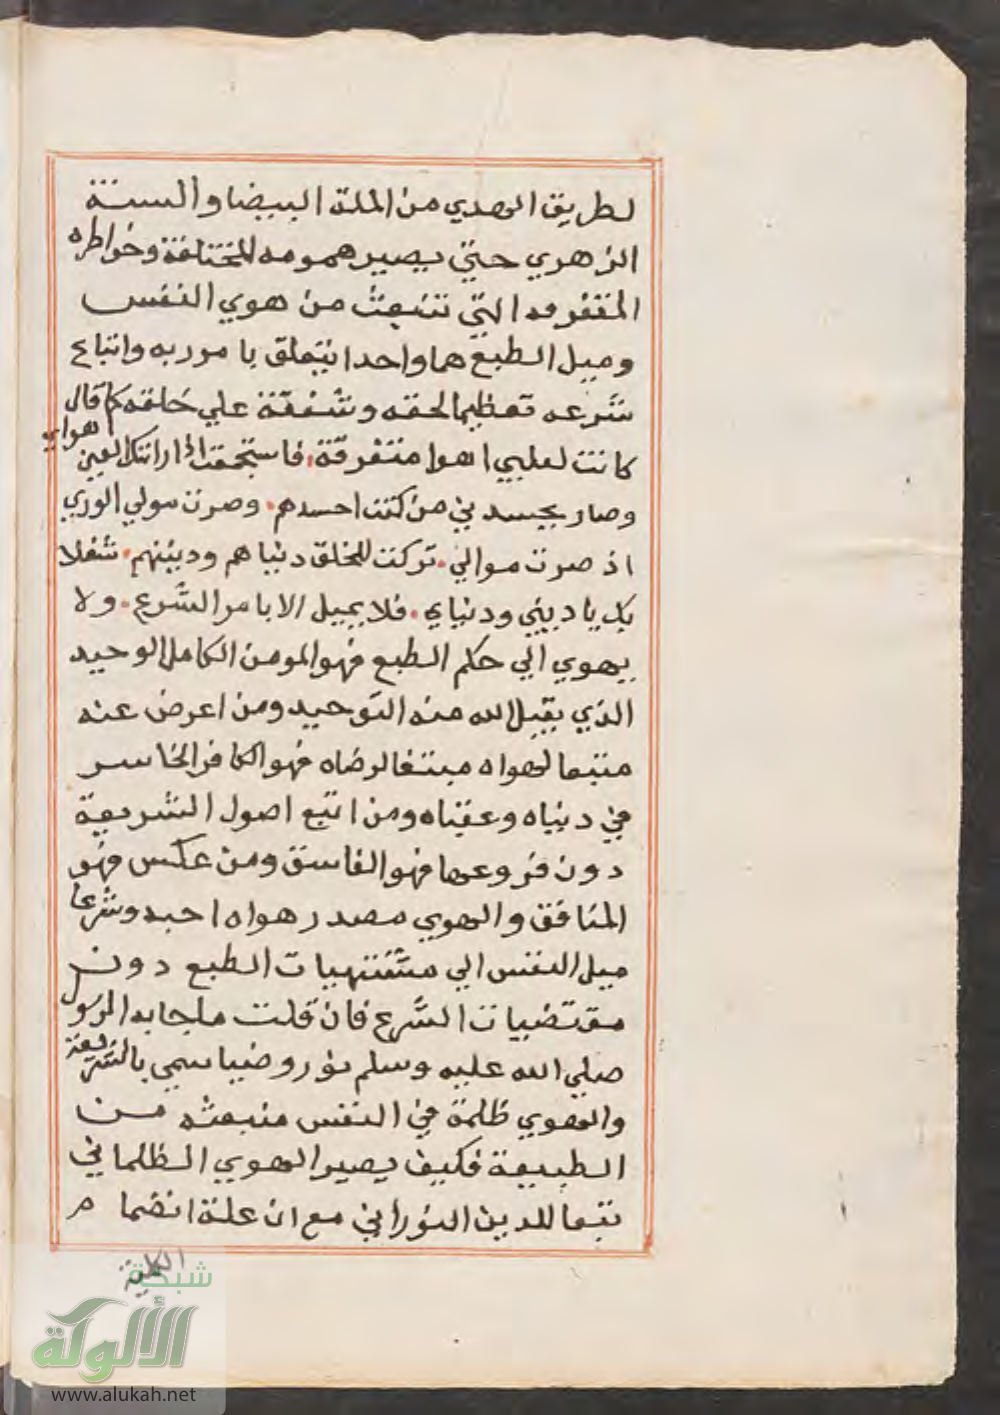 لطريق الهدي من الملة البيضا والسنة
الزهري حتي يصير همومه المختلفة وخواطره
المتفرقه التي تنبعث من هوي النفس
وميل الطبع هما واحدا يتعلق بامور ربه واتباع
شرعه تعظيما لحقه وشفقة علي خلقه كما قال
كانت لقلبي اهوا متفرقة فاستجمعت اذ راتك العين اهواي
وصار يحسدني من كنت احسدهم وصرت مولي الوري
اذ صرت موالي تركت للخلق دنياهم ودينهم شغلا
بك يا ديني ودنياي فلا يميل الا بامر الشرع ولا
يهوي الي حكم الطبع فهو المومن الكامل الوحيد
الذي يقبل الله منه التوحيد ومن اعرض عنه
متبعا لهواه مبتغا لرضاه فهو الكافر الخاسر
في دنياه وعقباه ومن اتبع اصول الشريعة
دون فروعها فهو الفاسق ومن عكس فهو
المنافق والهوي مصدر هواه احبه وشرعا
ميل النفس الي مشتهيات الطبع دون
مقتضيات الشرع فان قلت ما جابه الرسول
صلي الله عليه وسلم نور وضيا سمي بالشريعة
والهوي ظلمة في النفس منبعثه من
الطبيعة فكيف يصير الهوي الظلماني
تبعا للدين النوراني مع ان علة انضما م
شبكة
الألوكة
www.alukah.net